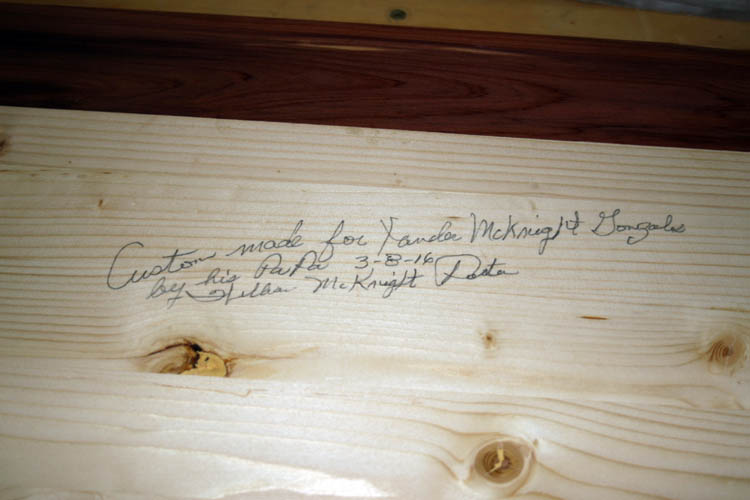 Custom made for Xander McKnight Gonzales
by his PaPa 3-8-16
McKnight